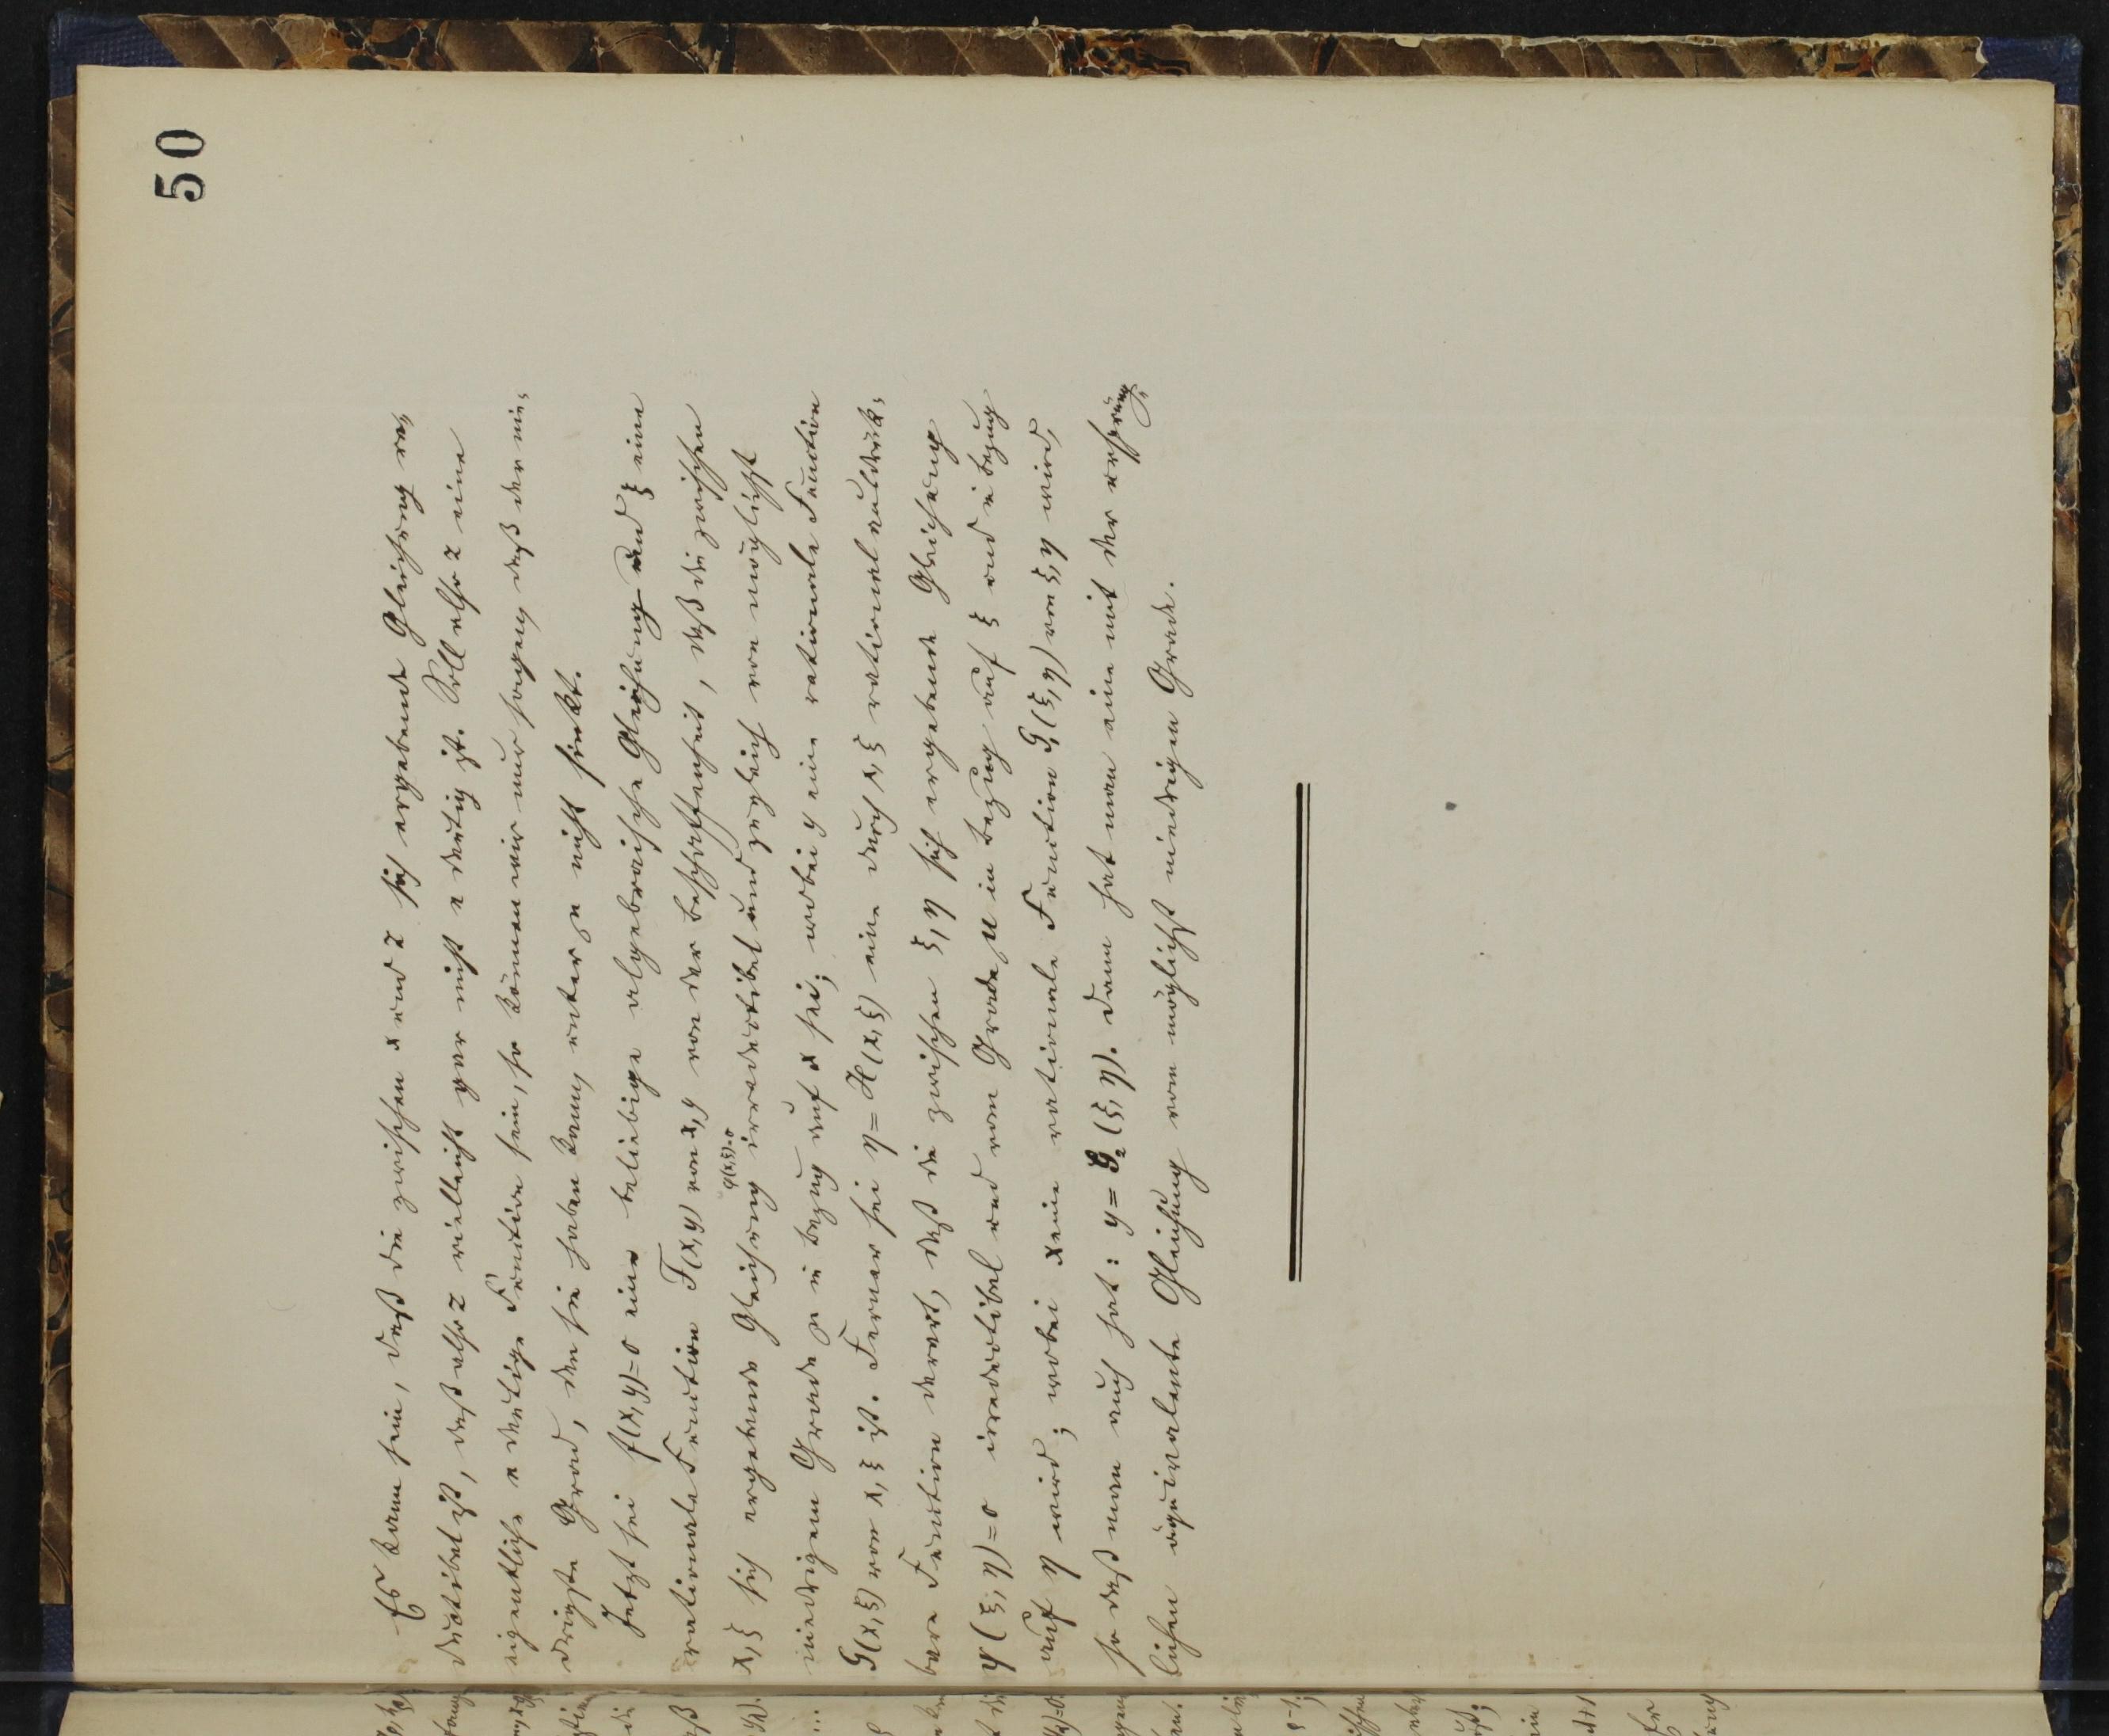 50
Es kann sein, daß die zwischen x und z sich ergebende Gleichung re,
ductibel ist, daß also z vielleicht gar nicht n deutig ist. Soll also z eine
eigentliche n deutige Function sein, so können wir nur sagen, daß der nie,
drigste Grad, den sie haben kann, unter n nicht sinkt.
Jetzt sei f(x,y)=0 eine beliebige algebraische Gleichung und ξ eine
rationale Function F(x,y) von x,y von der Beschaffenheit, daß die zwischen
φ(x,ξ)=0
x,ξ sich ergebende Gleichung irreductibel und zugleich von möglichst
niedrigem Grade n in bezug auf x sei; wobei y eine rationale Function
G(x,ξ) von x,ξ ist. Ferner sei η=H(x,ξ) eine durch x,ξ rational ausdrück,
bare Function derart, daß die zwischen ξ,η sich ergebende Gleichung
ψ(ξ,η)=0 irreductibel und vom Grade μ in bezug auf ξ und in bezug
auf η wird; wobei x eine rationale Function G₁(ξ,η) von ξ,η wird,
so daß man auch hat: y=G₂(ξ,η). Dann hat man eine mit der ursprüng,
lichen äquivalente Gleichung vom möglichst niedrigen Grade.